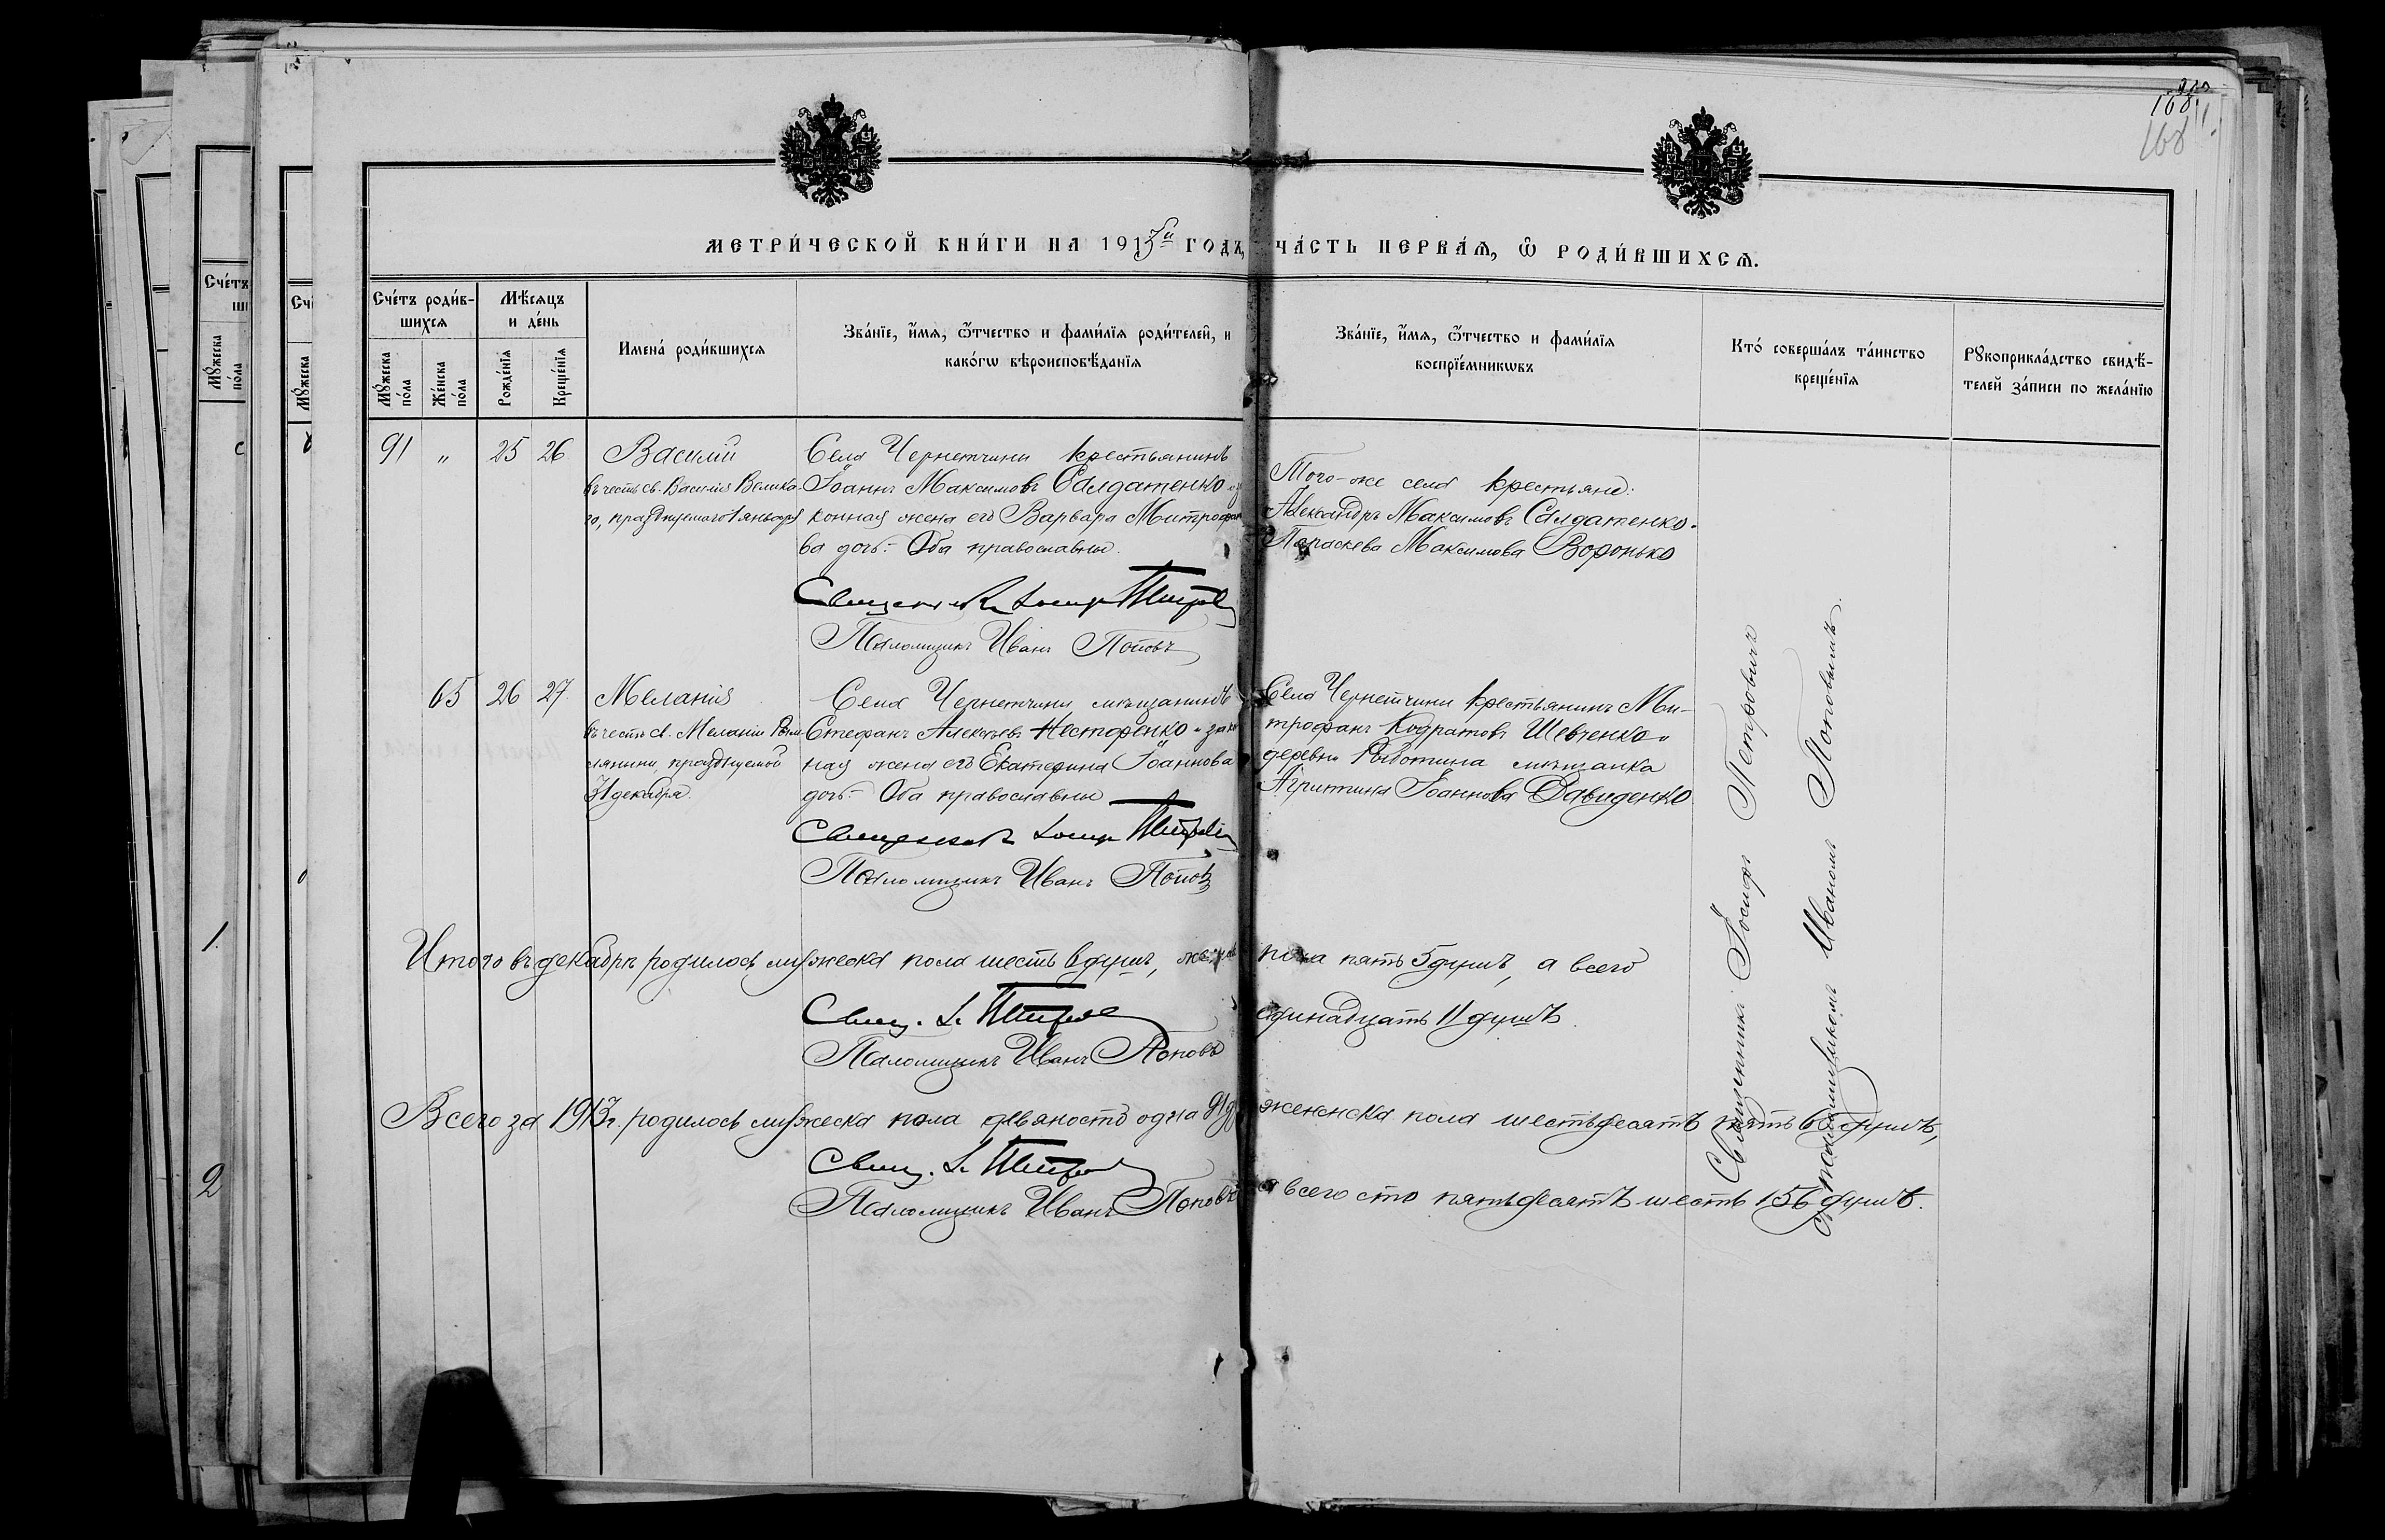 168
168
МЕТРИ́ЧЕСКОЙ КНИ́ГИ НА 1913й ГОДЪ, ЧА́СТЬ ПЕРВА́Ѧ, Ѽ РОДИ́ВШИХСѦ.
Сче́тъ роди́в-
шихсѧ
Мꙋ́жеска по́ла
Же́нска по́ла
Мѣ́сѧцъ
и де́нь
Рожде́нїѧ
Креще́нїѧ
Имена̀ роди́вшихсѧ
Зва́нїе, и́мѧ, ѻ҆́тчество и фами́лїѧ роди́телей, и
како́гѡ вѣроисповѣ́данїѧ
Зва́нїе, и́мѧ, ѻ҆́тчество и фами́лїѧ
воспрїе́мникѡвъ
Кто́ соверша́лъ та́инство
креще́нїѧ
Рꙋкоприкла́дство свидѣ́-
телей за́писи по жела́нїю
91 „ 25 26
Василій
въ честь св. Василія Велика-
го, празднуемаго 1 января
Села Чернетчины крестьянинъ
Іоаннъ Максимовъ Салдатенко
конная жена его Варвара Митрофано
ва дочь.- Оба православны.
Священникъ Іосифъ Петровъ
Псаломщикъ Иванъ Поповъ
Того-же села крестьяне:
Александръ Максимовъ Салдатенко.
Параскева Максимова Воронько
65 26 27
Меланія
въ честь св. Меланіи Рим-
лянини, празднуемой
31 декабря.
Села Чернетчины мѣщанинъ
Стефанъ Алексѣевъ Нестеренко и закон
ная жена его Екатерина Іоаннова
дочь.- Оба православны
Священникъ Іосифъ Петровъ
Псаломщикъ Иванъ Поповъ
Села Чернетчины крестьянинъ Ми-
трофанъ Кодратовъ Шевченко и
деревни Работина мѣщанка
Агриппина Іоаннова Давиденко
Священникъ Іосифъ Петровичъ
съ псаломщикомъ Иваномъ Поповымъ.
Итого въ декабрѣ родилось мужеска пола шесть 6 душъ, женска пола пять 5 душъ, а всего
одинадцать 11 душъ.
Свящ. І. Петровъ
Псаломщикъ Иванъ Поповъ
Всего за 1913г. родилось мужеска пола девяносто одна 91 женска пола шестьдесятъ пять 65 душъ,
а всего сто пятьдесятъ шесть 156 душъ.
Свящ. І. Петровъ
Псаломщикъ Иванъ Поповъ